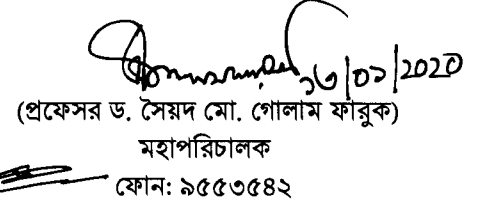 ১৩/০১/2020
(প্রফেসর ড. সৈয়দ মো. গোলাম ফারুক)
মহাপরিচালক
ফোন: ৯৫৫৩৫৪২